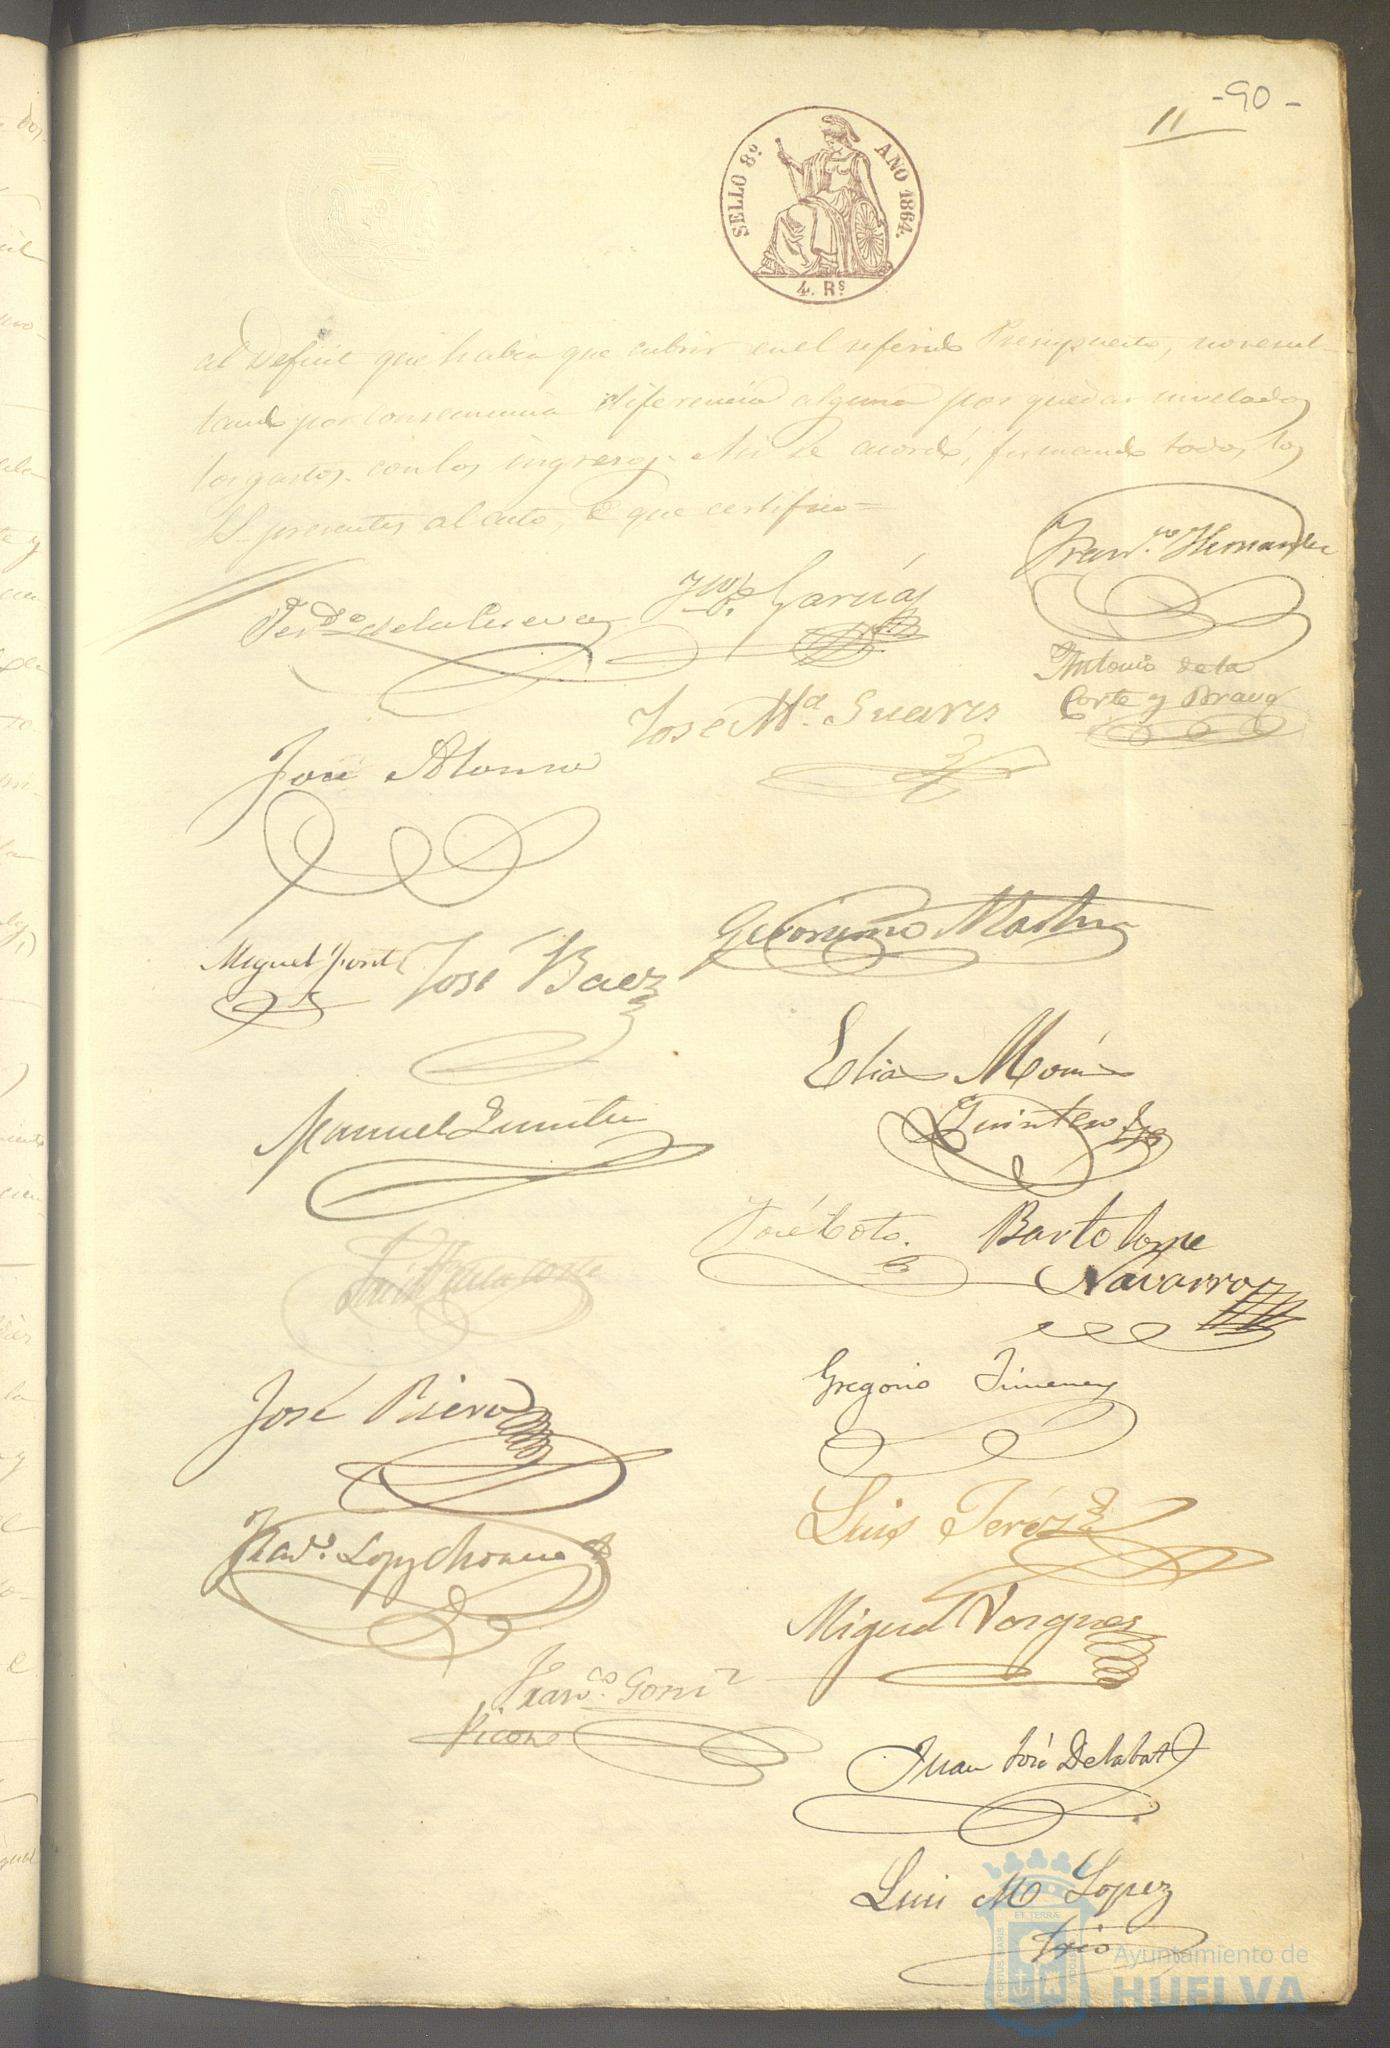 -90-
11
SELLO 8º AÑO 1864.
4. Rs
al Deficit que habia que cubrir en el referido Presupuesto, no resul-
tando por consecuencia diferencia alguna por quedar nivelados
los gastos con los ingresos. Asi se acordó, firmando todos los
SS. presentes al acto, de que certifico=
Franco Hernandez
Ferdo de la Cueva
García
Antonio de la
Corte y Bravo
José Ma. Suares
José Alonso
Geronimo Martin
Miguel Pont
José Baez
Elias Morin
Quintero
Manuel
José Coto.
Bartolome
Navarro
Gregorio Jimenez
José Riero
Luis Jeréz
Franco. Lopez
Miguel Vasques
Franco. Gomz
Picon
Juan José Delabat
Luis M Lopez
Trio
PORTUS MARIS ET TERRÆ CUSTODIA
Ayuntamiento de
HUELVA